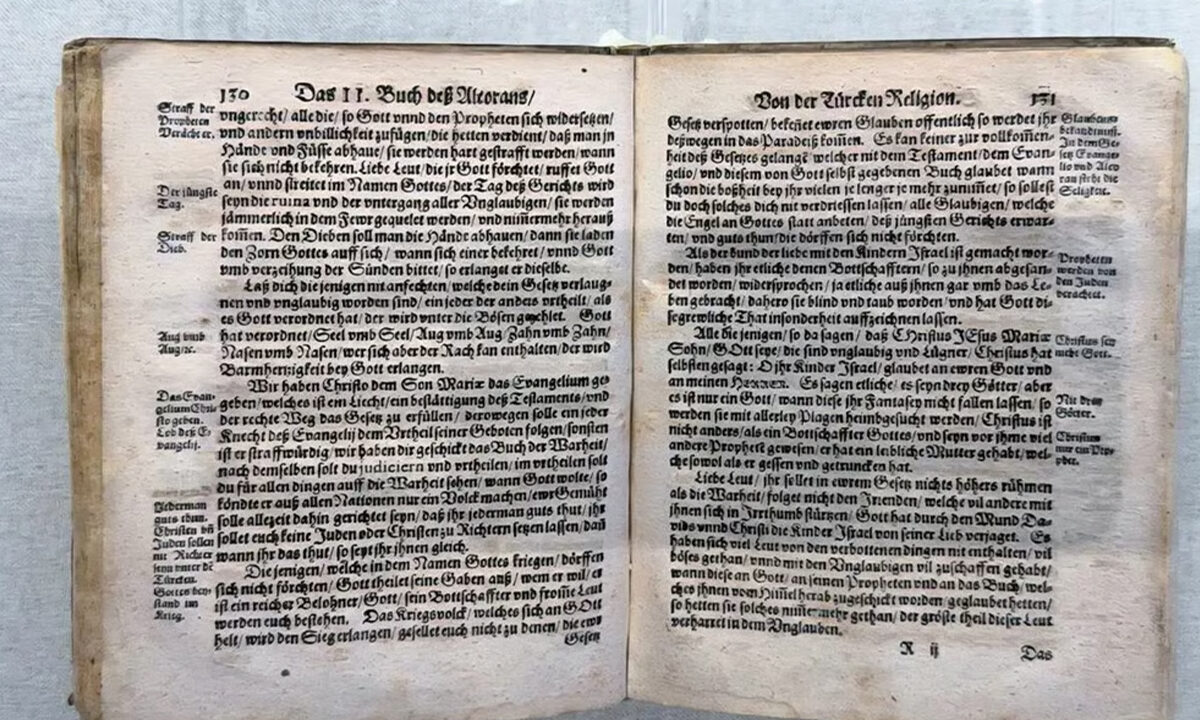 130 Das II. Buch deß Alcorans/
Straff der
Propheten
Verächter.
vngerecht/ alle die/ so Gott vnnd den Propheten sich widersetzen/
vnd andern vnbillichkeit zufügen/ die hetten verdient/ daß man jn
Hände vnd Füsse abhaue/ sie werden hart gestrafft werden/ wann
sie sich nicht bekehren. Liebe Leut/ die jr Gott förchtet/ ruffet Gott
an/ vnnd streitet im Namen Gottes/ der Tag deß Gerichts wird
Der jüngste
Tag.
seyn die ruina vnd der vntergang aller Vnglaubigen/ sie werden
jämmerlich in dem Fewr gequelet werden/ vnd nim̃ermehr herauß
Straff der
Dieb.
kom̃en. Den Dieben soll man die Hände abhauen/ dann sie laden
den Zorn Gottes auff sich/ wann sich einer bekehret/ vnnd Gott
vmb verzeihung der Sünden bittet/ so erlanget er dieselbe.
Laß dich die jenigen nit anfechten/ welche dein Gesetz verlaug-
nen vnd vnglaubig worden sind/ ein jeder der anders vrtheilt/ als
es Gott verordnet hat/ der wird vnter die Bösen gezehlet. Gott
Aug vmb
Aug/ꝛc.
hat verordnet/ Seel vmb Seel/ Aug vmb Aug/ Zahn vmb Zahn/
Nasen vmb Nasen/ wer sich aber der Rach kan enthalten/ der wird
Barmhertzigkeit bey Gott erlangen.
Wir haben Christo dem Son Mariæ das Evangelium ge-
Das Evan-
gelium Chri-
sto geben.
Lob deß E-
vangelij.
geben/ welches ist ein Liecht/ ein bestättigung deß Testaments/ vnd
der rechte Weg das Gesetz zu erfüllen/ derowegen solle ein jeder
Knecht deß Evangelij dem Vrtheil seiner Geboten folgen/ sonsten
ist er straffwürdig/ wir haben dir geschickt das Buch der Warheit/
nach demselben solt du judiciern vnd vrtheilen/ im vrtheilen solt
du für allen dingen auff die Warheit sehen/ wann Gott wolte/ so
Jederman
guts thun.
Christen vñ
Juden sollen
nit Richter
seyn vnter dẽ
Türcken.
köndte er auß allen Nationen nur ein Volck machen/ ewr Gemüht
solle allezeit dahin gerichtet seyn/ daß jhr jederman guts thut/ jhr
sollet euch keine Juden oder Christen zu Richtern setzen lassen/ dañ
wann jhr das thut/ so seyt jhr jhnen gleich.
Die jenigen/ welche in dem Namen Gottes kriegen/ dörffen
Gottes bey-
stand im
Krieg.
sich nicht förchten/ Gott theilet seine Gaben auß/ wem er wil/ er
ist ein reicher Belohner/ Gott/ sein Bottschaffter vnd from̃e Leut
werden euch bestehen. Das Kriegsvolck/ welches sich an GOtt
helt/ wird den Sieg erlangen/ gesellet euch nicht zu denen/ die ewr
Gesetz
Von der Türcken Religion. 131
Gesetz verspotten/ bekeñet ewren Glauben offentlich so werdet jhr
deßwegen in das Paradeiß kom̃en. Es kan keiner zur vollkom̃en-
Glaubens-
bekandtnuß.
In dem Ge-
setz Evange-
lio vnd Alco-
ran steht die
Seligkeit.
heit deß Gesetzes gelangẽ welcher nit dem Testament/ dem Evan-
gelio/ vnd diesem von Gott selbst gegebenen Buch glaubet wann
schon die boßheit bey jhr vielen je lenger je mehr zunim̃et/ so sollest
du doch solches dich nit verdriessen lassen/ alle Glaubigen/ welche
die Engel an Gottes statt anbeten/ deß jüngsten Gerichts erwar-
ten/ vnd guts thun/ die dörffen sich nicht förchten.
Als der bund der liebe mit den Kindern Israel ist gemacht wor-
Propheten
werden von
den Juden
verachtet.
den/ haben jhr etliche denen Bottschafftern/ so zu jhnen abgesan-
det worden/ widersprochen/ ja etliche auß jhnen gar vmb das Le-
ben gebracht/ dahero sie blind vnd taub worden/ vnd hat Gott di-
se grewliche That insonderheit auffzeichnen lassen.
Alle die jenigen/ so da sagen/ daß CHristus JEsus Mariæ
Christus sey
nicht Gott.
Sohn/ GOtt seye/ die sind vnglaubig vnd Lügner/ Christus hat
selbsten gesagt: O jhr Kinder Israel/ glaubet an ewren Gott vnd
an meinen HERREN. Es sagen etliche/ es seyn drey Götter/ aber
Nit drey
Götter.
es ist nur ein Gott/ wann diese jhr Fantasey nicht fallen lassen/ so
werden sie mit allerley Plagen heimbgesucht werden/ Christus ist
nicht anders/ als ein Bottschaffter Gottes/ vnd seyn vor jhme viel
Christus
nur ein Pro-
phet.
andere Prophetẽ gewesen/ er hat ein leibliche Mutter gehabt/ wel-
che sowol als er gessen vnd getruncken hat.
Liebe Leut/ jhr sollet in ewrem Gesetz nichts höhers rühmen
als die Warheit/ folget nicht den Irrenden/ welche vil andere mit
jhnen sich in Irrthumb stürtzen/ Gott hat durch den Mund Da-
vids vnnd Christi die Kinder Israel von seiner Lieb verjaget. Es
haben sich viel Leut von den verbottenen dingen nit enthalten/ vil
böses gethan/ vnnd mit den Vnglaubigen vil zuschaffen gehabt/
wann diese an Gott/ an seinen Propheten vnd an das Buch/ wel-
ches jhnen vom Him̃el herab zugeschickt worden/ geglaubet hetten/
so hetten sie solches nim̃ermehr gethan/ der gröste theil dieser Leut
verharret in dem Vnglauben.
R ij Das